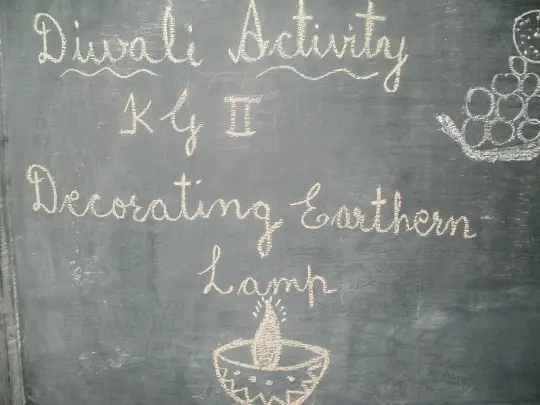 Diwali Activity
KG II
Decorating Earthern
Lamp